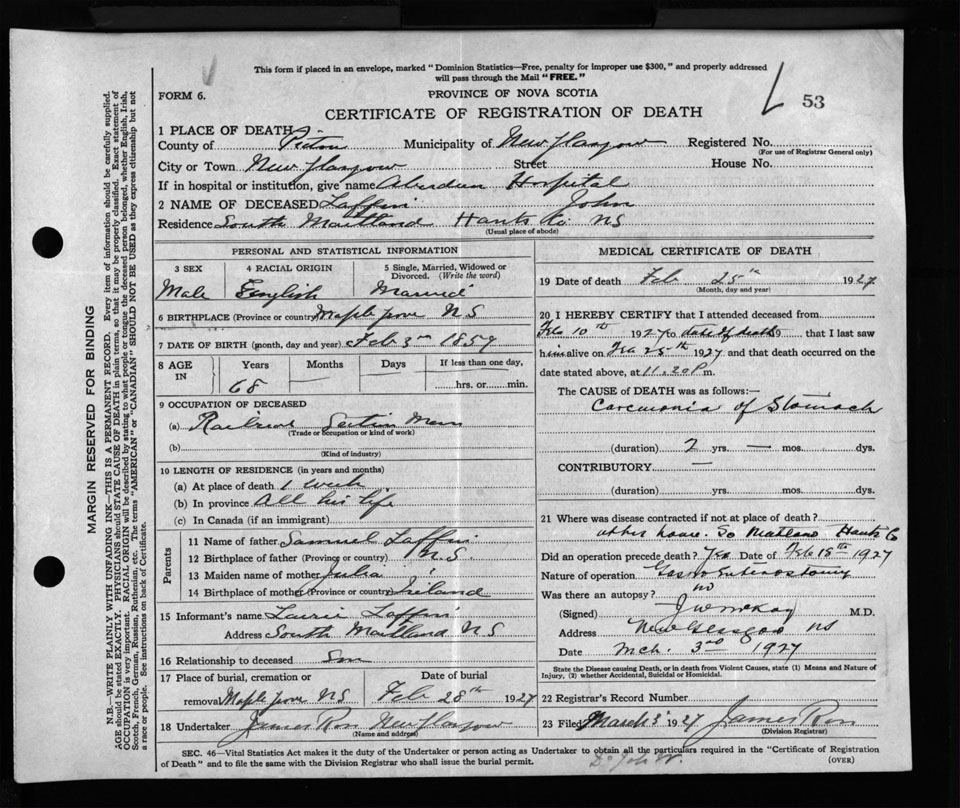 This form if placed in an envelope, marked "Dominion Statistics—Free, penalty for improper use $300," and properly addressed
will pass through the Mail "FREE."
FORM 6.
PROVINCE OF NOVA SCOTIA
53
CERTIFICATE OF REGISTRATION OF DEATH
1 PLACE OF DEATH
County of Pictou Municipality of New Glasgow Registered No.
(For use of Registrar General only)
City or Town New Glasgow Street House No.
If in hospital or institution, give name Aberdeen Hospital
2 NAME OF DECEASED Laffin John
Residence South Maitland Hants Co NS
(Usual place of abode)
PERSONAL AND STATISTICAL INFORMATION
3 SEX 4 RACIAL ORIGIN 5 Single, Married, Widowed or
Divorced. (Write the word)
Male English Married
6 BIRTHPLACE (Province or country) Maple Grove N S
7 DATE OF BIRTH (month, day and year) Feb 3rd 1859
8 AGE IN Years Months Days If less than one day,
68 hrs. or min.
9 OCCUPATION OF DECEASED
(a) Railroad Section Man
(Trade or occupation or kind of work)
(b)
(Kind of industry)
10 LENGTH OF RESIDENCE (in years and months)
(a) At place of death 1 week
(b) In province All his life
(c) In Canada (if an immigrant)
Parents
11 Name of father Samuel Laffin
12 Birthplace of father (Province or country) N.S
13 Maiden name of mother Julia
14 Birthplace of mother (Province or country) Ireland
15 Informant's name Laffin
Address South Maitland N S
16 Relationship to deceased Son
17 Place of burial, cremation or Date of burial
removal Maple Grove NS Feb 28th 1927
18 Undertaker James Ross New Glasgow
(Name and address)
MEDICAL CERTIFICATE OF DEATH
19 Date of death Feb 25th 1927
(Month, day and year)
20 I HEREBY CERTIFY that I attended deceased from
Feb 10th 1927 to date of death 19 that I last saw
him alive on Feb 25th 1927 and that death occurred on the
date stated above, at 11.20 P m.
The CAUSE of DEATH was as follows:—
Carcinonia of Stomach
(duration) 2 yrs. — mos. dys.
CONTRIBUTORY —
(duration) yrs. mos. dys.
21 Where was disease contracted if not at place of death?
home. So Maitland Hants Co
Did an operation precede death? Yes Date of Feb 18th 1927
Nature of operation Gastro Enterostomy
Was there an autopsy? no
(Signed) J W McKay M.D.
Address New Glasgow NS
Date Mch. 3rd 1927
State the Disease causing Death, or in death from Violent Causes, state (1) Means and Nature of
Injury, (2) whether Accidental, Suicidal or Homicidal.
22 Registrar's Record Number
23 Filed March 3 1927 James Ross
(Division Registrar)
SEC. 46—Vital Statistics Act makes it the duty of the Undertaker or person acting as Undertaker to obtain all the particulars required in the "Certificate of Registration
of Death" and to file the same with the Division Registrar who shall issue the burial permit.
(OVER)
MARGIN RESERVED FOR BINDING
N.B.—WRITE PLAINLY WITH UNFADING INK—THIS IS A PERMANENT RECORD. Every item of information should be carefully supplied.
AGE should be stated EXACTLY. PHYSICIANS should STATE CAUSE OF DEATH in plain terms, so that it may be properly classified. Exact statement of
OCCUPATION is very important. RACIAL ORIGIN will be described by stating to what people or tongue the deceased person belonged, whether English, Irish,
Scotch, French, German, Russian, Ruthenian, etc. The terms "AMERICAN" or "CANADIAN" SHOULD NOT BE USED as they express citizenship but not
a race or people. See instructions on back of Certificate.